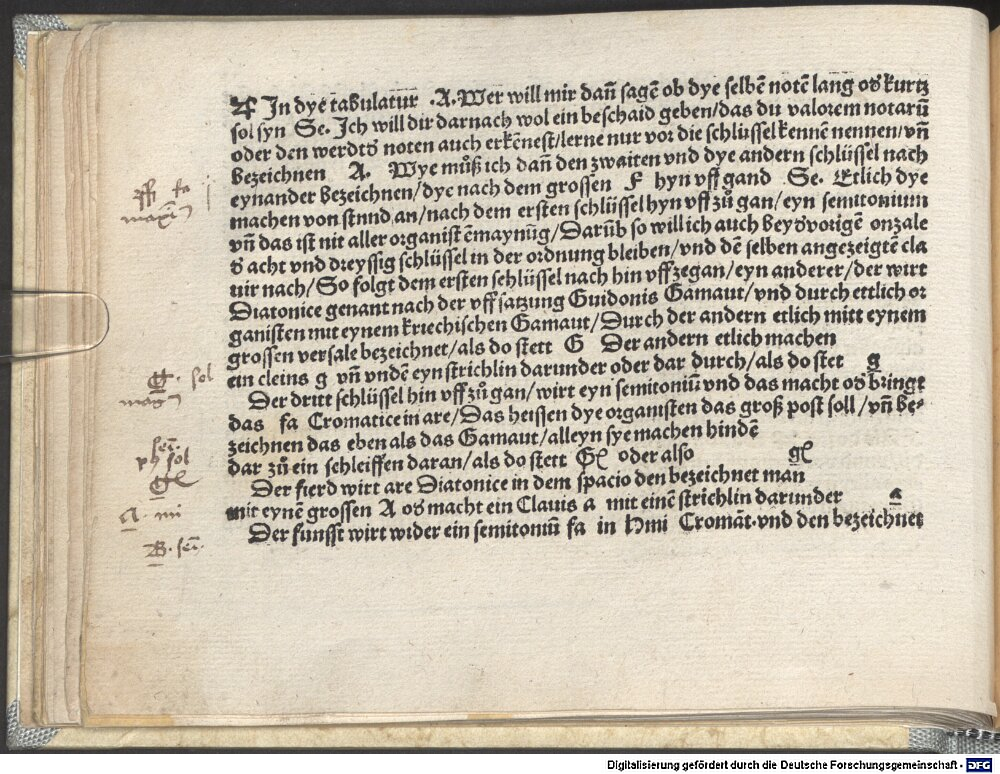 In dye tabulatur .A. Wer will mir dañ sagẽ ob dye selbẽ notẽ lang oð kurtz
sol syn Se. Ich will dir darnach wol ein beschaid geben/das du valorem notarũ
oder den werdtð noten auch erkẽnest/lerne nur vor die schlüssel kennẽ nennen/vñ
bezeichnen A. Wye můß ich dañ den zwaiten vnd dye andern schlüssel nach
eynander bezeichnen/dye nach dem grossen F hyn vff gand Se. Etlich dye
machen von stnnd an/nach dem ersten schlüssel hyn vff zů gan/eyn semitonium
vñ das ist nit aller organist ẽmaynũg/Darũb so will ich auch bey ð vorigẽ onzale
ð acht vnd dreyssig schlüssel in der ordnung bleiben/vnd dẽ selben angezeigtẽ cla
uir nach/So folgt dem ersten schlüssel nach hin vff zegan/eyn anderer/der wirt
Diatonice genant nach der vffsatzung Guidonis Gamaut/vnd durch ettlich or
ganisten mit eynem kriechischen Gamaut/Durch der andern etlich mitt eynem
grossen versale bezeichnet/als do stett G Der andern etlich machen
ein cleins g vñ vndẽ eyn strichlin darunder oder dar durch/als do stet g
Der dritt schlüssel hin vff zů gan/wirt eyn semitoniũ vnd das macht oð bringt
das fa Cromatice in are/Das heissen dye organisten das groß post soll/vñ be-
zeichnen das eben als das Gamaut/alleyn sye machen hindẽ
dar zů ein schleiffen daran/als do stett Gꝭ oder also gꝭ
Der fierd wirt are Diatonice in dem spacio den bezeichnet man
mit eynẽ grossen A oð macht ein Clauis a mit einẽ strichlin darunder a
Der funfft wirt wider ein semitoniũ fa in hmi Cromãt. vnd den bezeichnet
ff fa
G. sol
sol
A. mi
B.
Digitalisierung gefördert durch die Deutsche Forschungsgemeinschaft - DFG